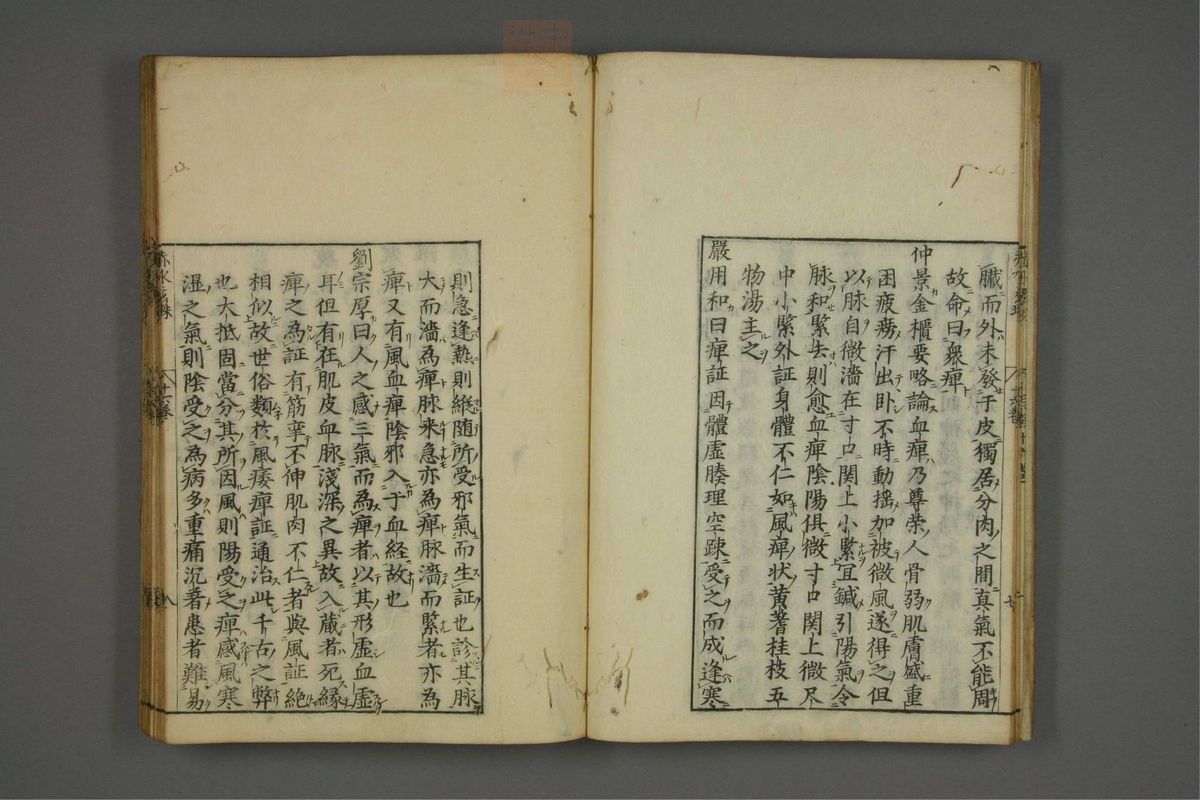 臓而外未發于皮獨居分肉之間真氣不能周
故命曰衆痺
仲景金櫃要略論血痺乃尊荣人骨弱肌膚盛重
困疲䓖汗出卧不時動揺加被微風遂得之但
以脉自微濇在寸口関上小緊宜鍼引陽氣令
脉和緊去則愈血痺陰陽俱微寸口関上微尺
中小緊外証身體不仁如風痺状黄耆桂枝五
物湯主之
嚴用和曰痺証因體虚腠理空踈受之而成逢寒
則急逢熱則縦随所受邪氣而生証也診其脉
大而濇為痺脉来急亦為痺脉濇而緊者亦為
痺又有風血痺陰邪入于血経故也
劉宗厚曰人之感三氣而為痺者以其形虚血虚
耳但有在肌皮血脉淺深之異故入蔵者死縁
痺之為証有筋挛不伸肌肉不仁者與風証絶
相似故世俗類於風痿痺証通治此千古之弊
也大抵固當分其所因風則陽受之痺感風寒
湿之氣則陰受之為病多重痛沉著患者難易